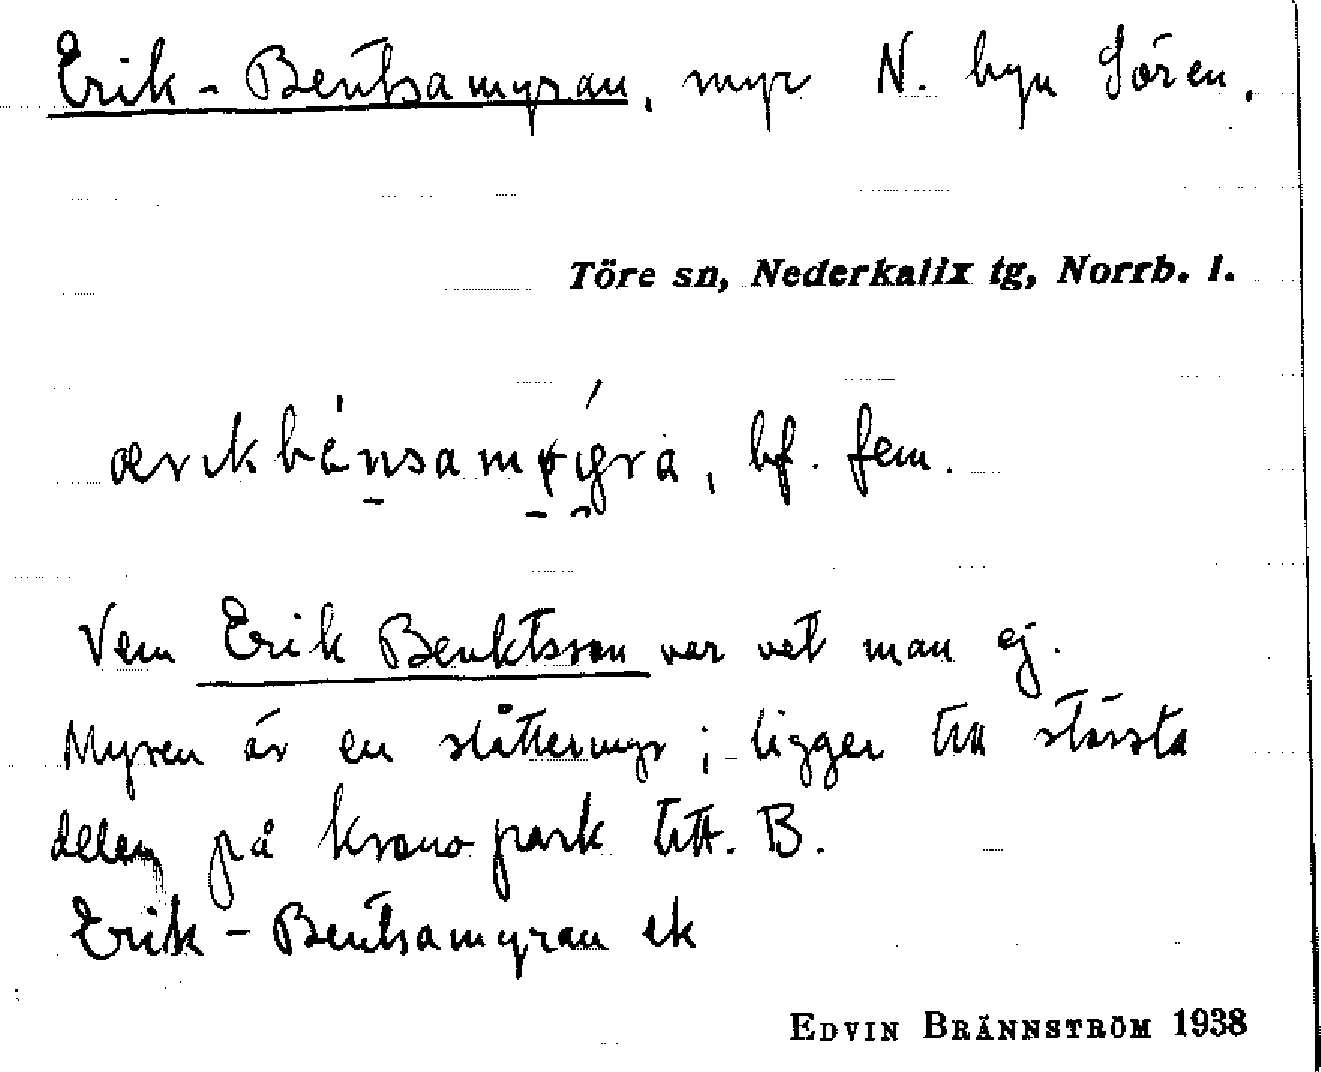 Erik-Bentsamyran, myr N. byn Sören.
Töre sn, Nederkalix tg, Norrb. l.
bf. fem.
Vem Erik Benktsson var vet man ej.
Myren är en slåttermyr; ligger till största
delen på kronopark litt. B.
Erik-Bentsamyran ek
EDVIN BRÄNNSTRÖM 1938